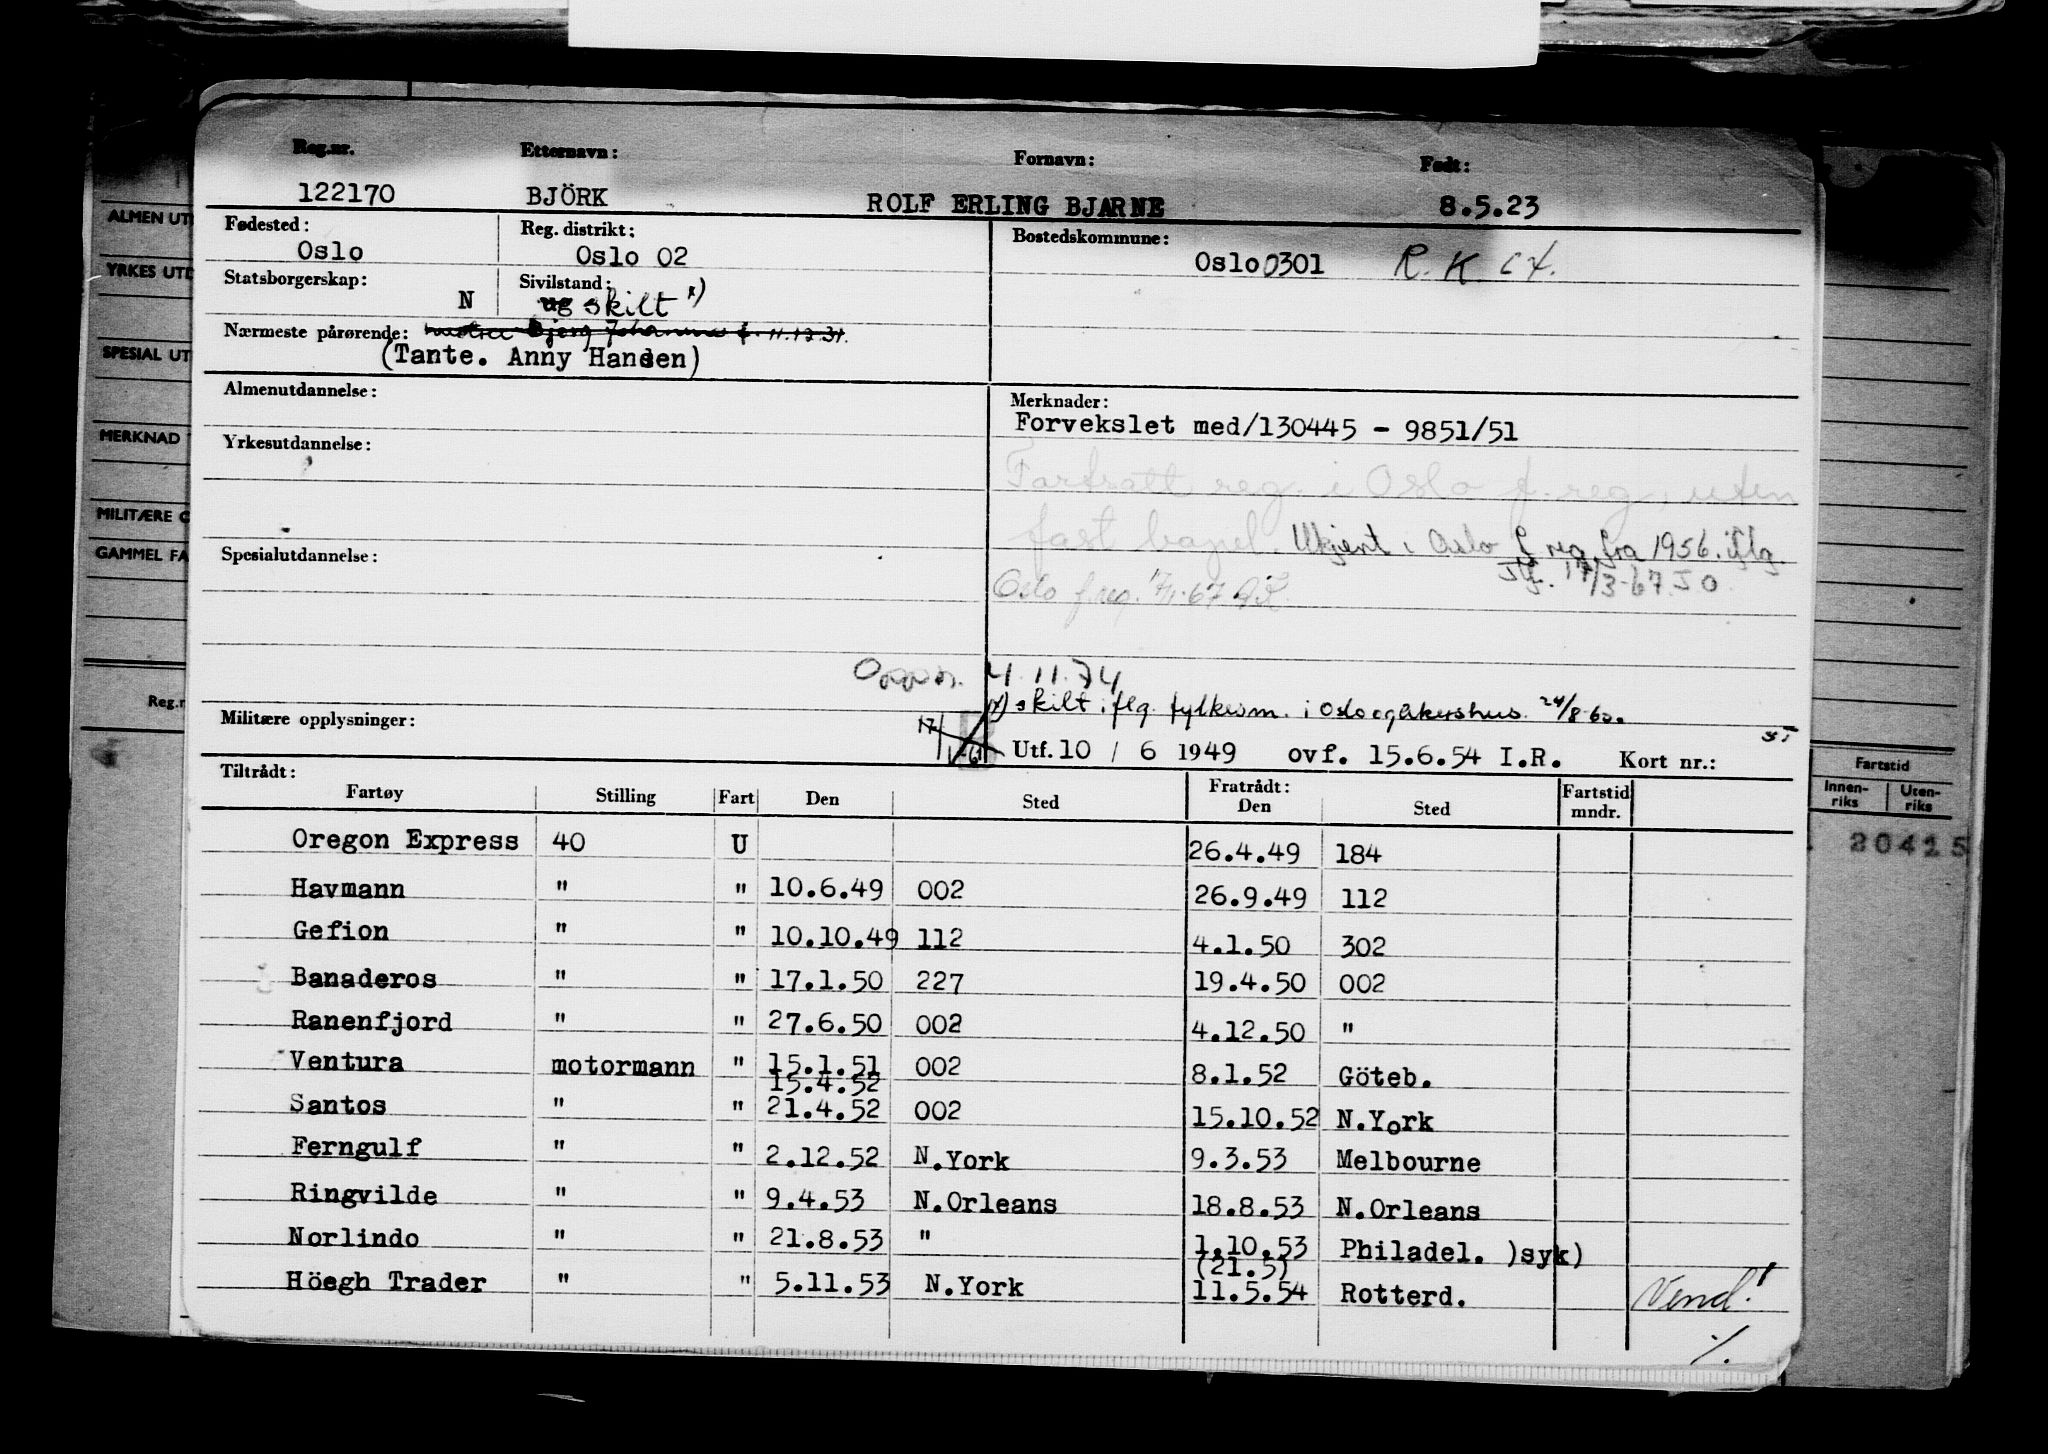 Reg.nr. Etternavn: Fornavn: Født:
122170 BJÖRK ROLF ERLING BJARNE 8.5.23
Fødested: Reg. distrikt: Bostedskommune:
Oslo Oslo 02 Oslo 0301 R.K.
Statsborgerskap: Sivilstand:
N ug skilt x)
Nærmeste pårørende: hustru Bjørg Johanna f. 11.12.31.
(Tante. Anny Hansen)
Almenutdannelse: Merknader:
Forvekslet med/130445 - 9851/51
Yrkesutdannelse:
Fortsatt reg. i Oslo f.reg. uten
fast bopel. Ukjent i Oslo f.reg. fra 1956. iflg.
Spesialutdannelse:
Oslo f.reg. 67 17/3-67 J O
Oppn. 4.11.74
x) skilt iflg. fylkesm. i Oslo og Akershus 24/8-60.
Militære opplysninger:
17/1-61 Utf. 10 / 6 1949 ovf. 15.6.54 I.R. Kort nr.:
Tiltrådt: Fratrådt:
Fartøy Stilling Fart Den Sted Den Sted Fartstid mndr.
Oregon Express 40 U 26.4.49 184
Havmann " " 10.6.49 002 26.9.49 112
Gefion " " 10.10.49 112 4.1.50 302
Banaderos " " 17.1.50 227 19.4.50 002
Ranenfjord " " 27.6.50 002 4.12.50 "
Ventura motormann " 15.1.51 002 8.1.52 Göteb.
15.4.52
Santos " " 21.4.52 002 15.10.52 N.York
Ferngulf " " 2.12.52 N.York 9.3.53 Melbourne
Ringvilde " " 9.4.53 N.Orleans 18.8.53 N.Orleans
Norlindo " " 21.8.53 " 1.10.53 Philadel. )syk)
(21.5)
Höegh Trader " " 5.11.53 N.York 11.5.54 Rotterd. Vend!
./.
ALMEN UT
YRKES UTD
SPESIAL UT
MERKNAD
MILITÆRE O
GAMMEL FA
Reg.n
Fartstid
Innen-riks Uten-riks
20415